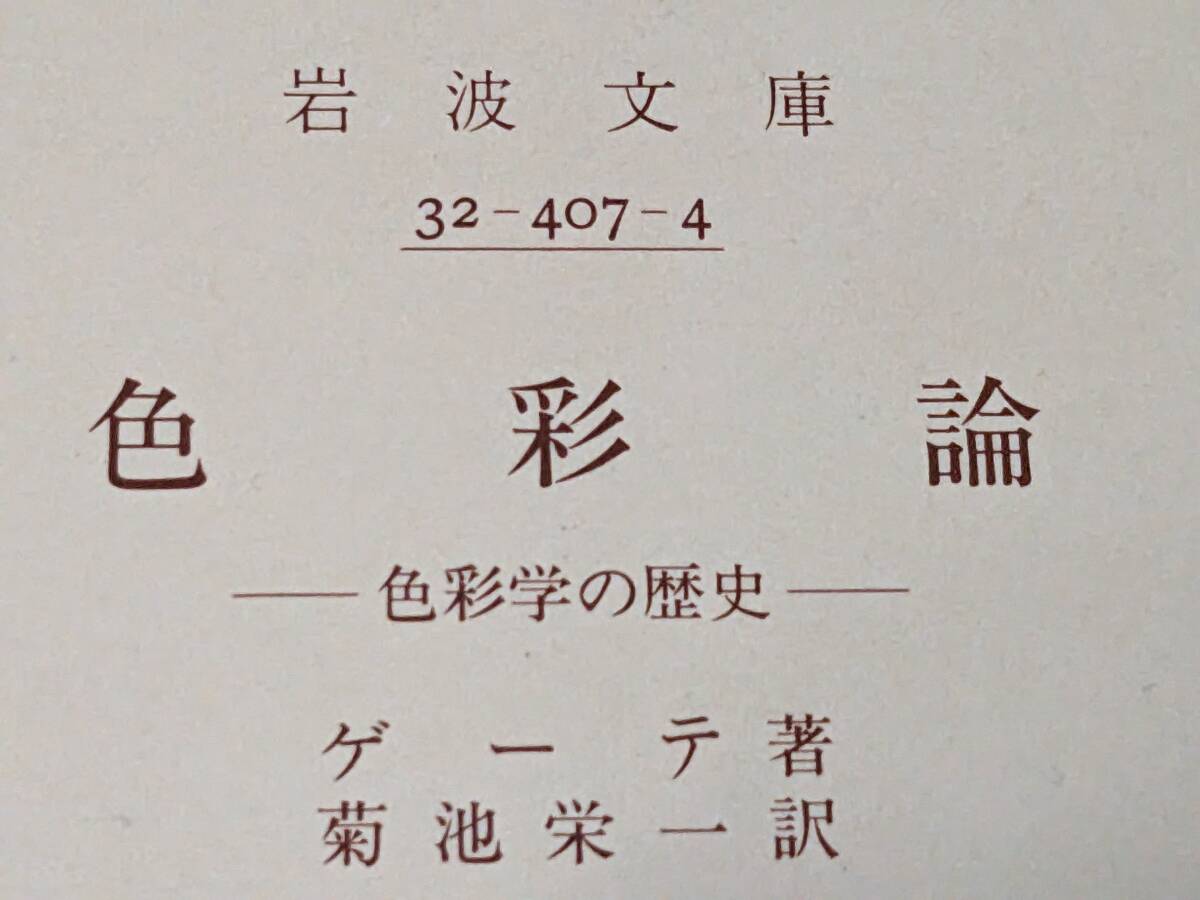 岩波文庫
32-407-4
色彩論
——色彩学の歴史——
ゲーテ著
菊池栄一訳